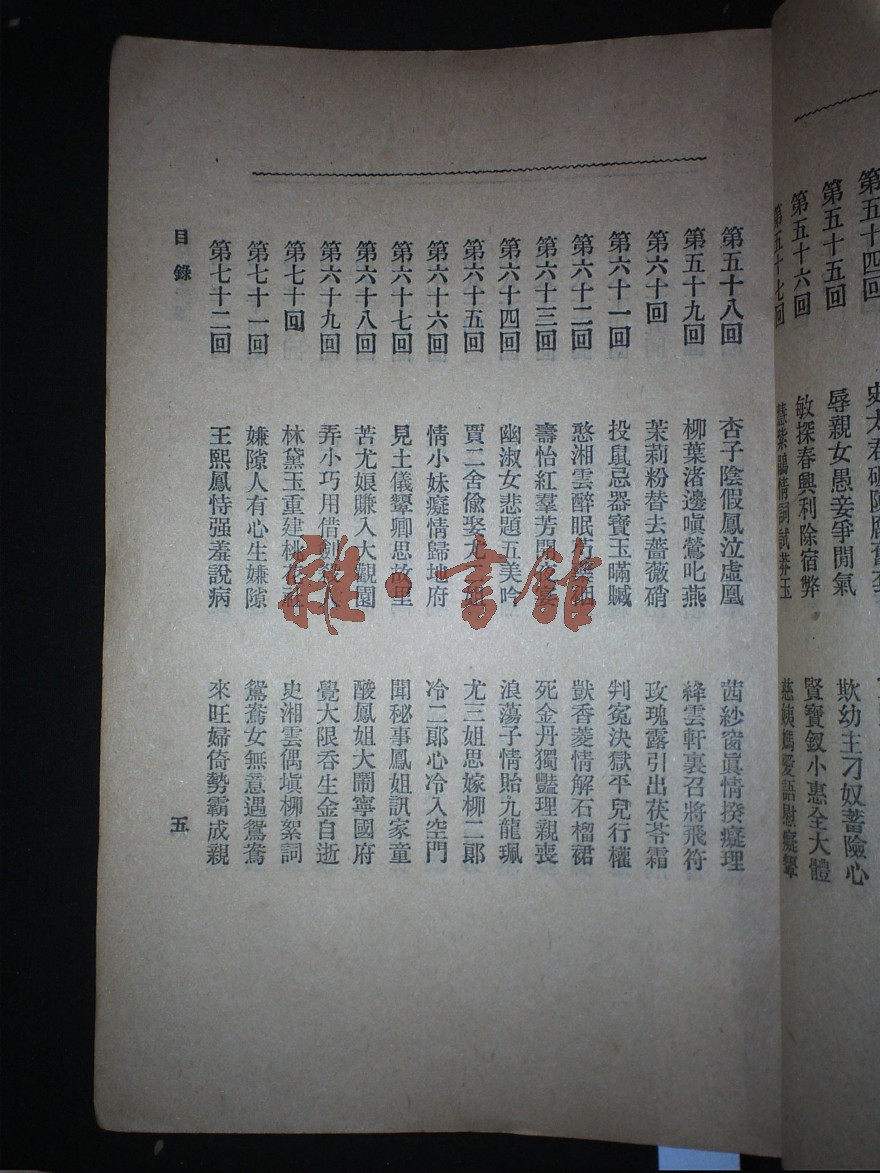 第五十四回 史太君破陳腐舊
第五十五回 辱親女愚妾爭閒氣 欺幼主刁奴蓄險心
第五十六回 敏探春興利除宿弊 賢寶釵小惠全大體
第五十七回 慧紫鵑情詞試莽玉 慈姨媽愛語慰癡顰
第五十八回 杏子陰假鳳泣虛凰 茜紗窗眞情揆癡理
第五十九回 柳葉渚邊嗔鶯叱燕 絳雲軒裏召將飛符
第六十回 茉莉粉替去薔薇硝 玫瑰露引出茯苓霜
第六十一回 投鼠忌器寶玉瞞贓 判冤決獄平兒行權
第六十二回 憨湘雲醉眠芍藥裀 獃香菱情解石榴裙
第六十三回 壽怡紅羣芳開夜宴 死金丹獨豔理親喪
第六十四回 幽淑女悲題五美吟 浪蕩子情貽九龍珮
第六十五回 賈二舍偸娶尤二姐 尤三姐思嫁柳二郞
第六十六回 情小妹癡情歸地府 冷二郞心冷入空門
第六十七回 見土儀顰卿思故里 聞秘事鳳姐訊家童
第六十八回 苦尤娘賺入大觀園 酸鳳姐大鬧寧國府
第六十九回 弄小巧用借劍殺人 覺大限吞生金自逝
第七十回 林黛玉重建桃花社 史湘雲偶塡柳絮詞
第七十一回 嫌隙人有心生嫌隙 鴛鴦女無意遇鴛鴦
第七十二回 王熙鳳恃强羞說病 來旺婦倚勢霸成親
目錄 五
雜·書館